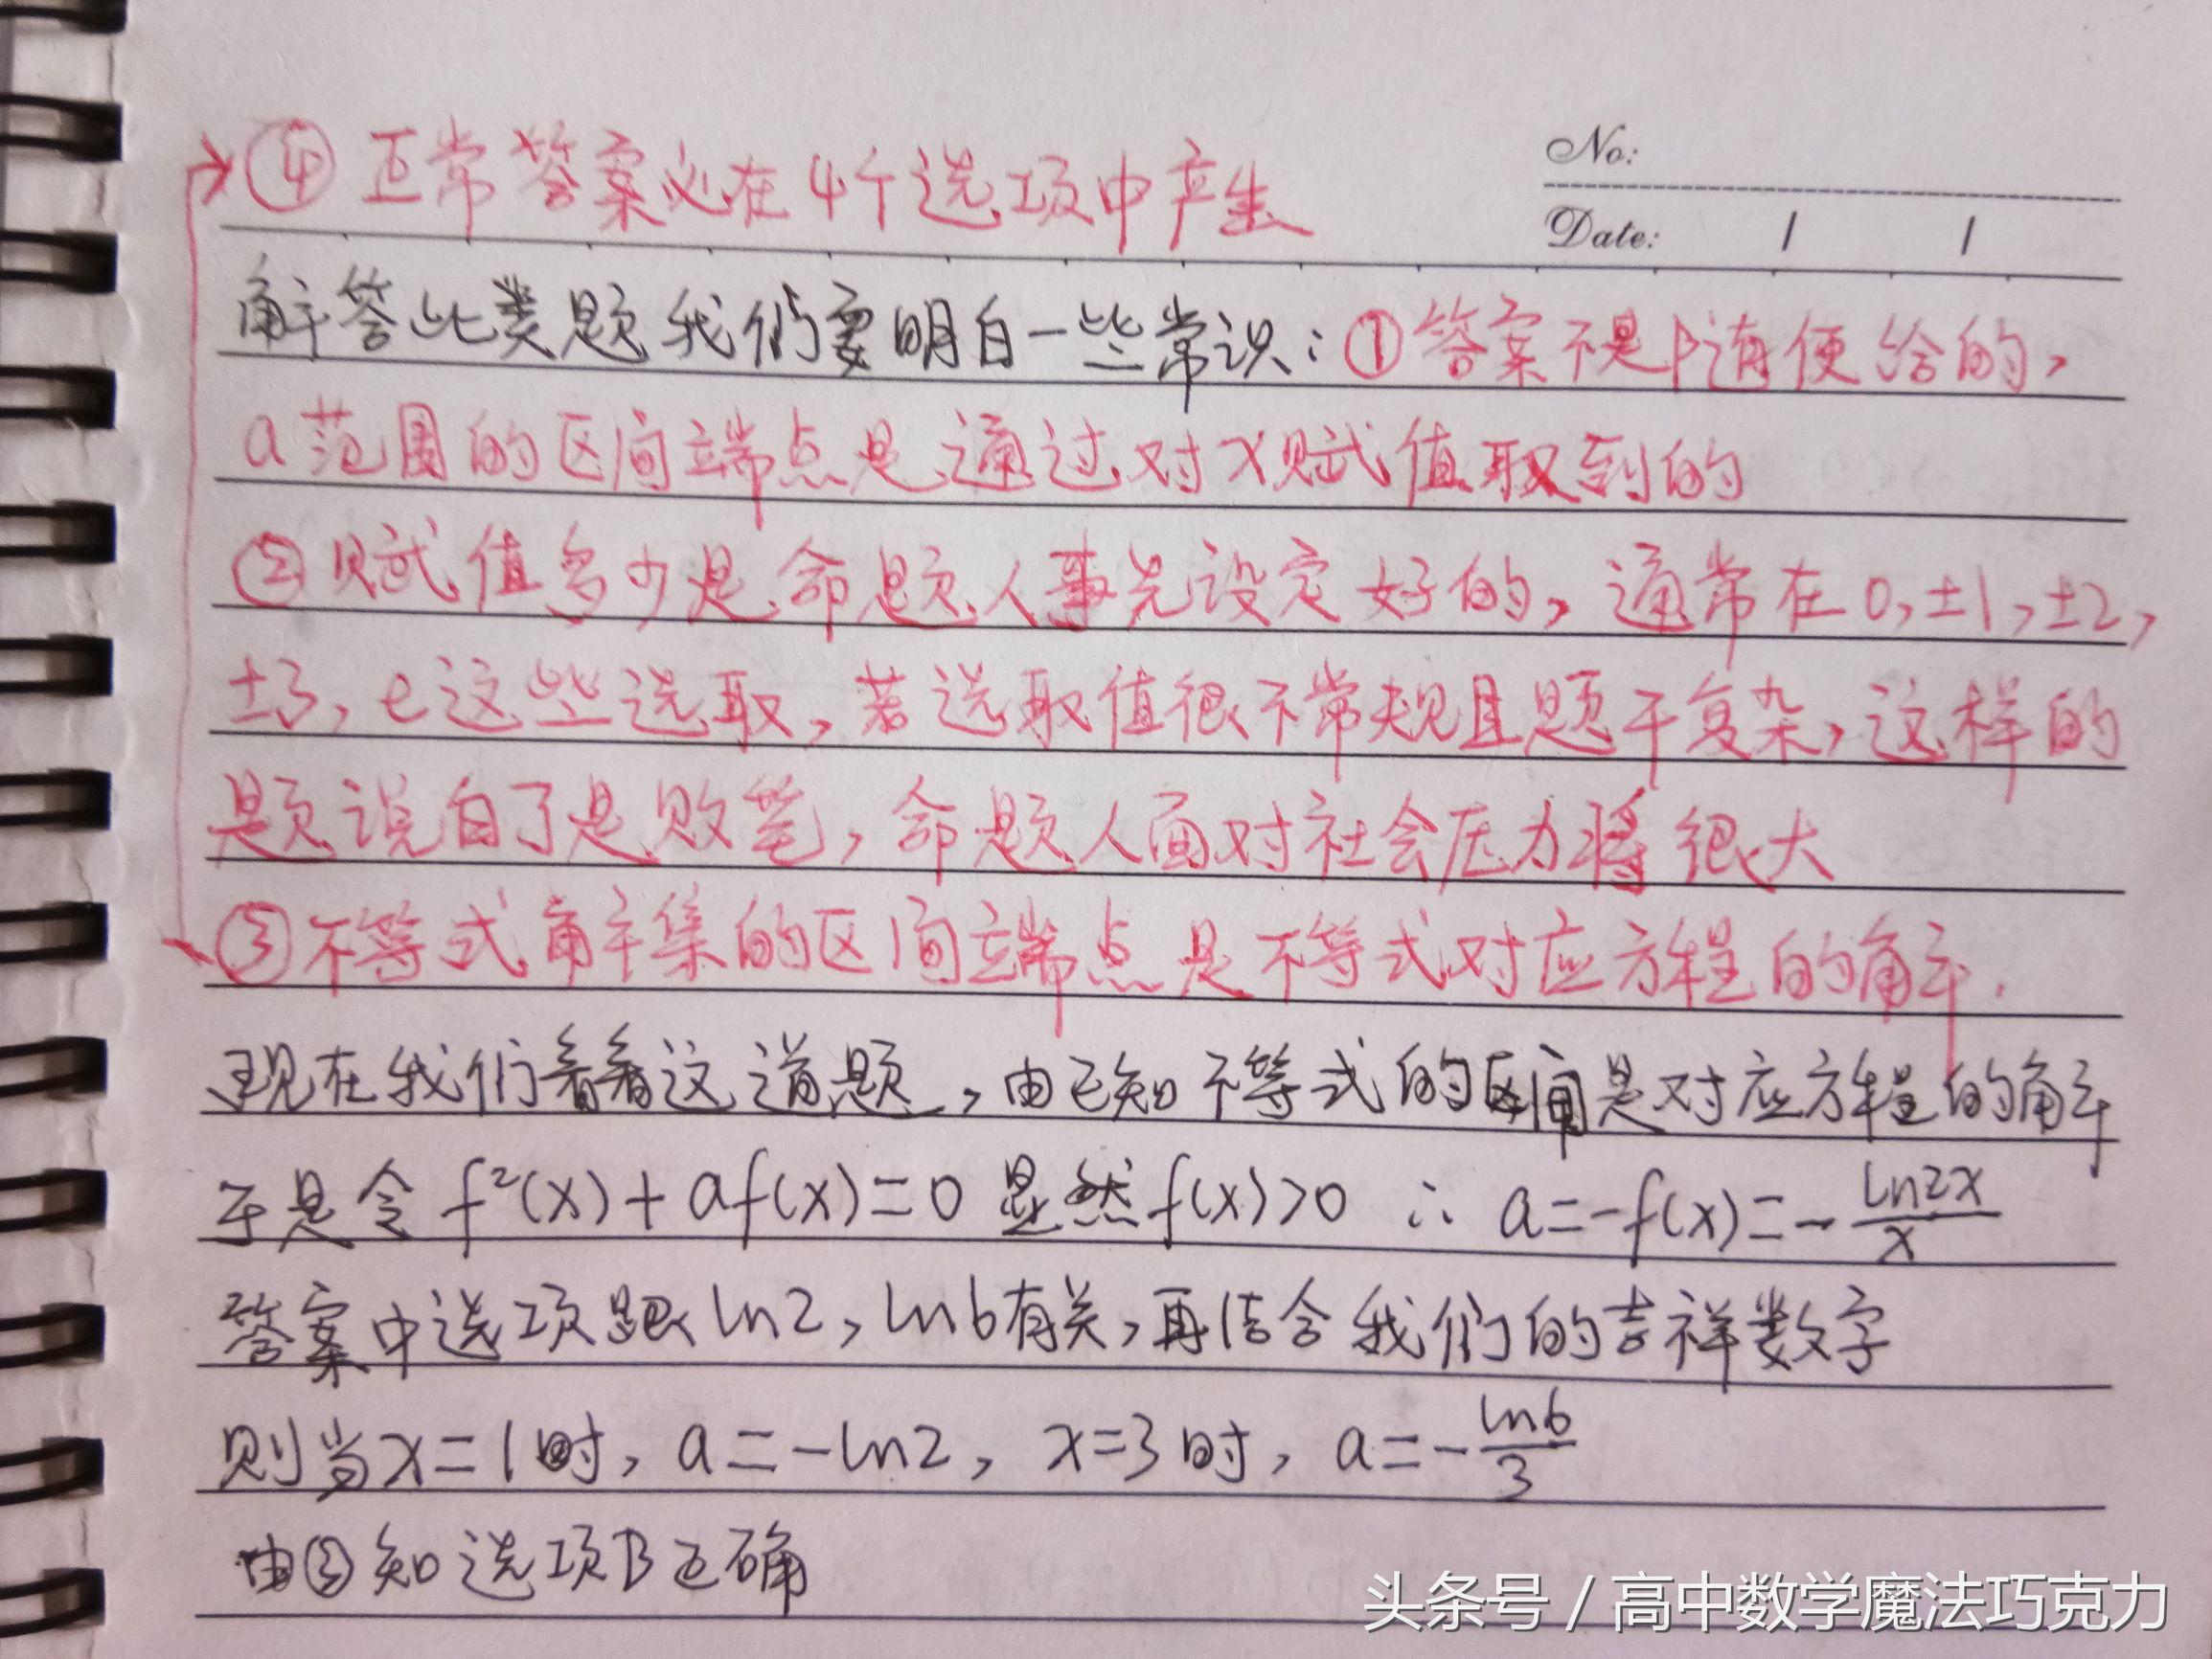 ④正常答案必在4个选项中产生
No:
Date: / /
解答此类题我们要明白一些常识:①答案不是随便给的,
a范围的区间端点是通过对x赋值取到的
②赋值多少是命题人事先设定好的,通常在0,±1,±2,
±3,e这些选取,若选取值很不常规且题干复杂,这样的
题说白了是败笔,命题人面对社会压力将很大
③不等式解集的区间端点是不等式对应方程的解.
现在我们看看这道题,由已知不等式的区间是对应方程的解
于是令 f²(x)+af(x)=0 显然f(x)>0 ∴ a=-f(x)=-ln2x/x
答案中选项跟ln2,ln6有关,再结合我们的吉祥数字
则当x=1时,a=-ln2,x=3时,a=-ln6/3
由③知选项B正确
头条号/高中数学魔法巧克力